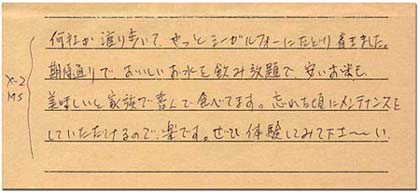 何社か渡り歩いて、やっとシーガルフォーにたどり着きました。
期待通りで、おいしいお水を飲み放題で、安いお米も
美味しいと家族で喜んで食べてます。忘れた頃にメンテナンスを
していただけるので、楽です。ぜひ体験してみて下さ〜い。
X-2
MS